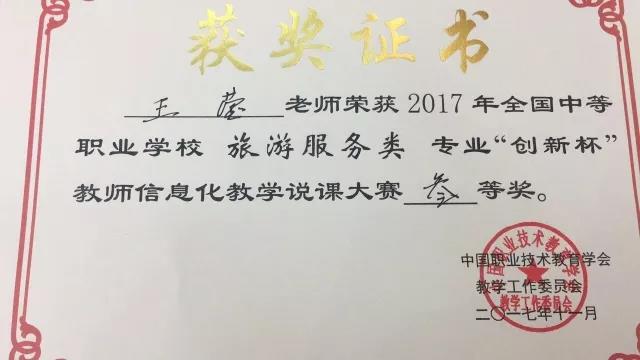 获奖证书
王莹 老师荣获 2017 年全国中等
职业学校 旅游服务类 专业“创新杯”
教师信息化教学说课大赛 叁 等奖。
中国职业技术教育学会
教学工作委员会
二〇一七年十一月
中国职业技术教育学会
教学工作委员会